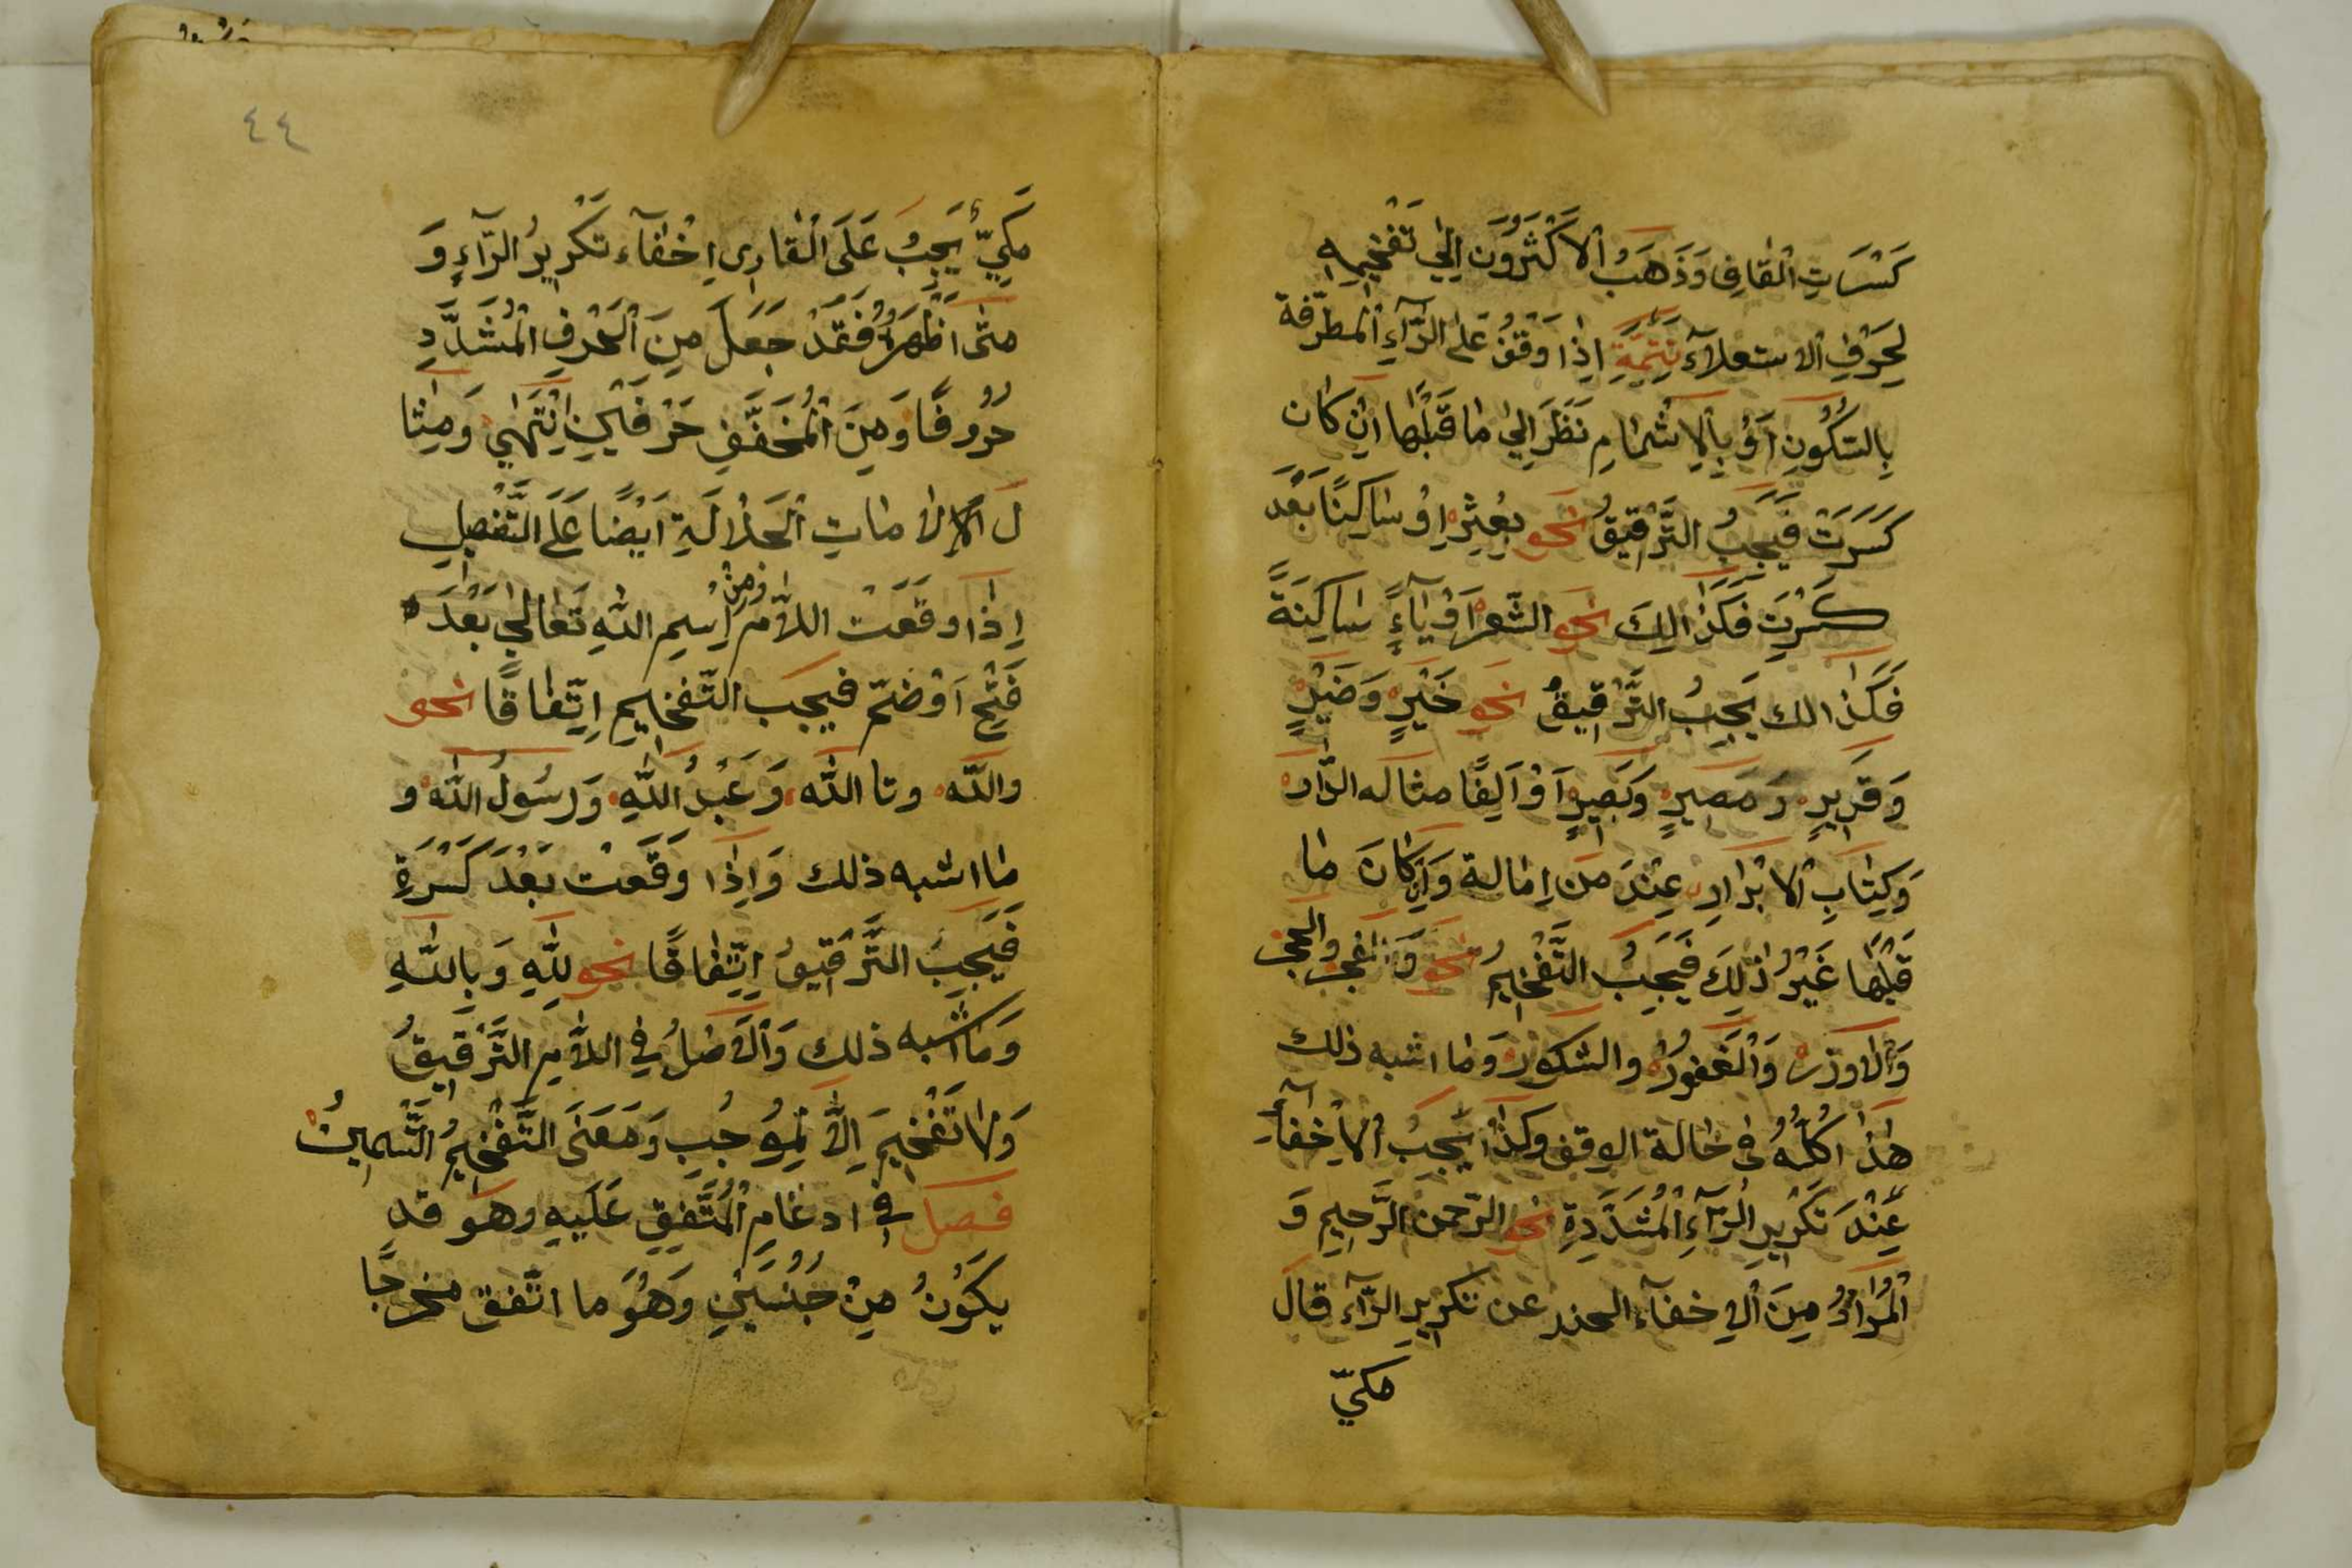 كَسْرَتِ الْقَافِ وَذَهَبَ الْاَكْثَرُوْنَ اِلٰي تَفْخِيْمِهِ
لِحَرْفِ الاستعلآءِ تَتِمَّةٌ اِذَا وَقَفْتَ عَلَى الرَّآءِ الْمُطَرَّفَةِ
بِالسُّكُوْنِ اَوْ بِالْاِشْمَامِ نَظَرَ اِلٰي مَا قَبْلَهَا اِنْ كَانَ
كَسَرَتْ فَيَجِبُ التَّرْقِيْقُ نَحْو بُعْثِرَ اَوْ سَاكِنًا بَعْدَ
كَسَرَتْ فَكَذَالِكَ نَحْو الشَّعْرِ اَوْ يَآءً سَاكِنَةً
فَكَذَالك يَجِبُ التَّرْقِيْقُ نَحْو خَيْرٍ وَضَيْرٍ
وَقَرِيْرٍ وَمَصِيْرٍ وَبَصِيْرٍ اَوْ اَلِفًا مثاله الدَّار
وَكِتَابِ الْاَبْرَارِ عِنْدَ مَنْ اِمَالة وَاِنْ كَانَ مَا
قَبْلَهَا غَيْرُ ذٰلِكَ فَيَجِبُ التَّفْخِيْمُ نَحْو وَانْفَجَرَ والحجر
وَالاوزر وَالْغَفُوْرُ والشكور وَمَا اشبه ذلك
هٰذَا كُلُّهُ فى حَالة الوقف وكذا يَجِبُ الْاِخْفَآءُ
عِنْدَ تَكْرِيْرِ الرَّآءِ الْمُشَدَّدَةِ نَحْو الرّحمن الرَّحِيْمِ وَ
الْمُرَادُ مِنَ الْاِخفآء الحذر عن تكرير الرّآء قال
مكيّ
٤٤
مَكِيّ يَجِبُ عَلَى الْقارِى اِخْفَآء تَكْرِيْرُ الرَّآءِ وَ
مَتٰى اَظْهَرَهُ فَقَدْ جَعَلَ مِنَ الْحَرْفِ الْمُشَدَّدِ
حُرُوفًا وَمِنَ الْمُخَفَّفِ حَرْفَيْنِ اِنْتَهٰي وَمِثَا
لَ الامات الْجَلَالَةِ اَيْضًا عَلَى التَّفْصِيلِ
اِذَا وقَعَتْ اللَّامُ مِنْ اِسْمِ اللّٰهِ تَعَالٰي بَعْدَ
فَتْحٍ اَوْ ضَمّ فيجب التَّفْخِيْمِ اِتِّفَاقًا نحو
والله وتا الله وَعَبْدُ اللّٰهِ وَرَسُوْلُ اللّٰهِ و
مَا اشبه ذلك وَاِذَا وَقَعَتْ بَعْدَ كَسْرَةٍ
فَيَجِبَ التَّرْقِيْقُ اِتِّفَاقًا نحو لِلّٰهِ وَبِاللّٰهِ
وَمَا اشبه ذلك وَالْاَصْلُ فِي اللَّامِ التَّرْقِيْقُ
وَلَا تَفْخِيْمَ اِلَّا لِمُوْجِبٍ وَمَعْنَى التَّفْخِيْمُ التَّسْمِيْنُ
فصل في ادغَامِ الْمُتَّفِقِ عَلَيهِ وهُوَ قَد
يَكُوْنُ مِنْ جِنْسَيْنِ وَهُوَ ما اتَّفق مخرجًا